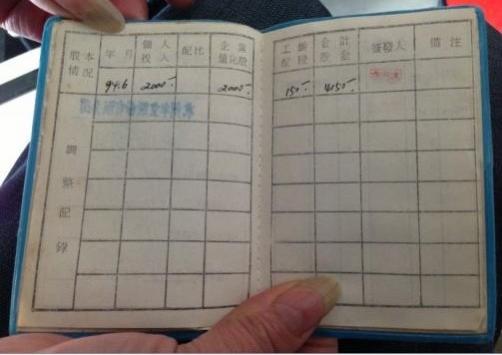 股本情況 年月 個人投入 配比 企業量化股 工齡配股 合計股金 簽發人 備注
94.6 2000- 2000- 150- 4150-
調整記錄